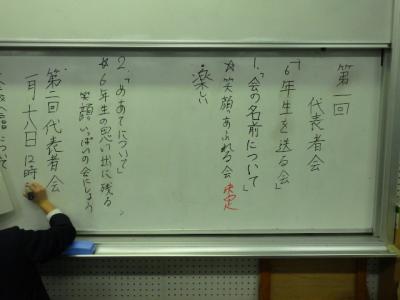 第一回
代表者会
「6年生を送る会」
1.「会の名前について」
☆笑顔あふれる会 決定
楽しい
2.「めあてについて」
☆6年生の思い出に残る
笑顔いっぱいの会にしよう
第二回代表者会
一月二十八日 12時